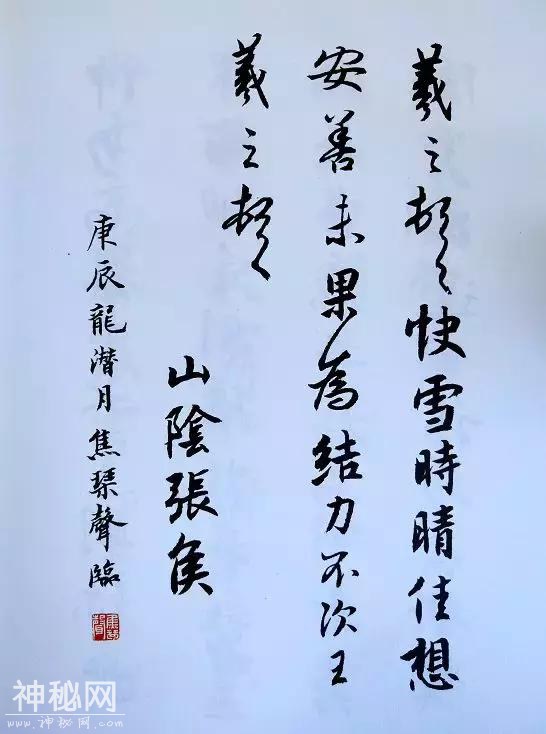 羲之頓首快雪時晴佳想
安善未果為結力不次王
羲之頓首
山陰張侯
庚辰龍潛月焦琹聲臨
神秘网
www.神秘网.com